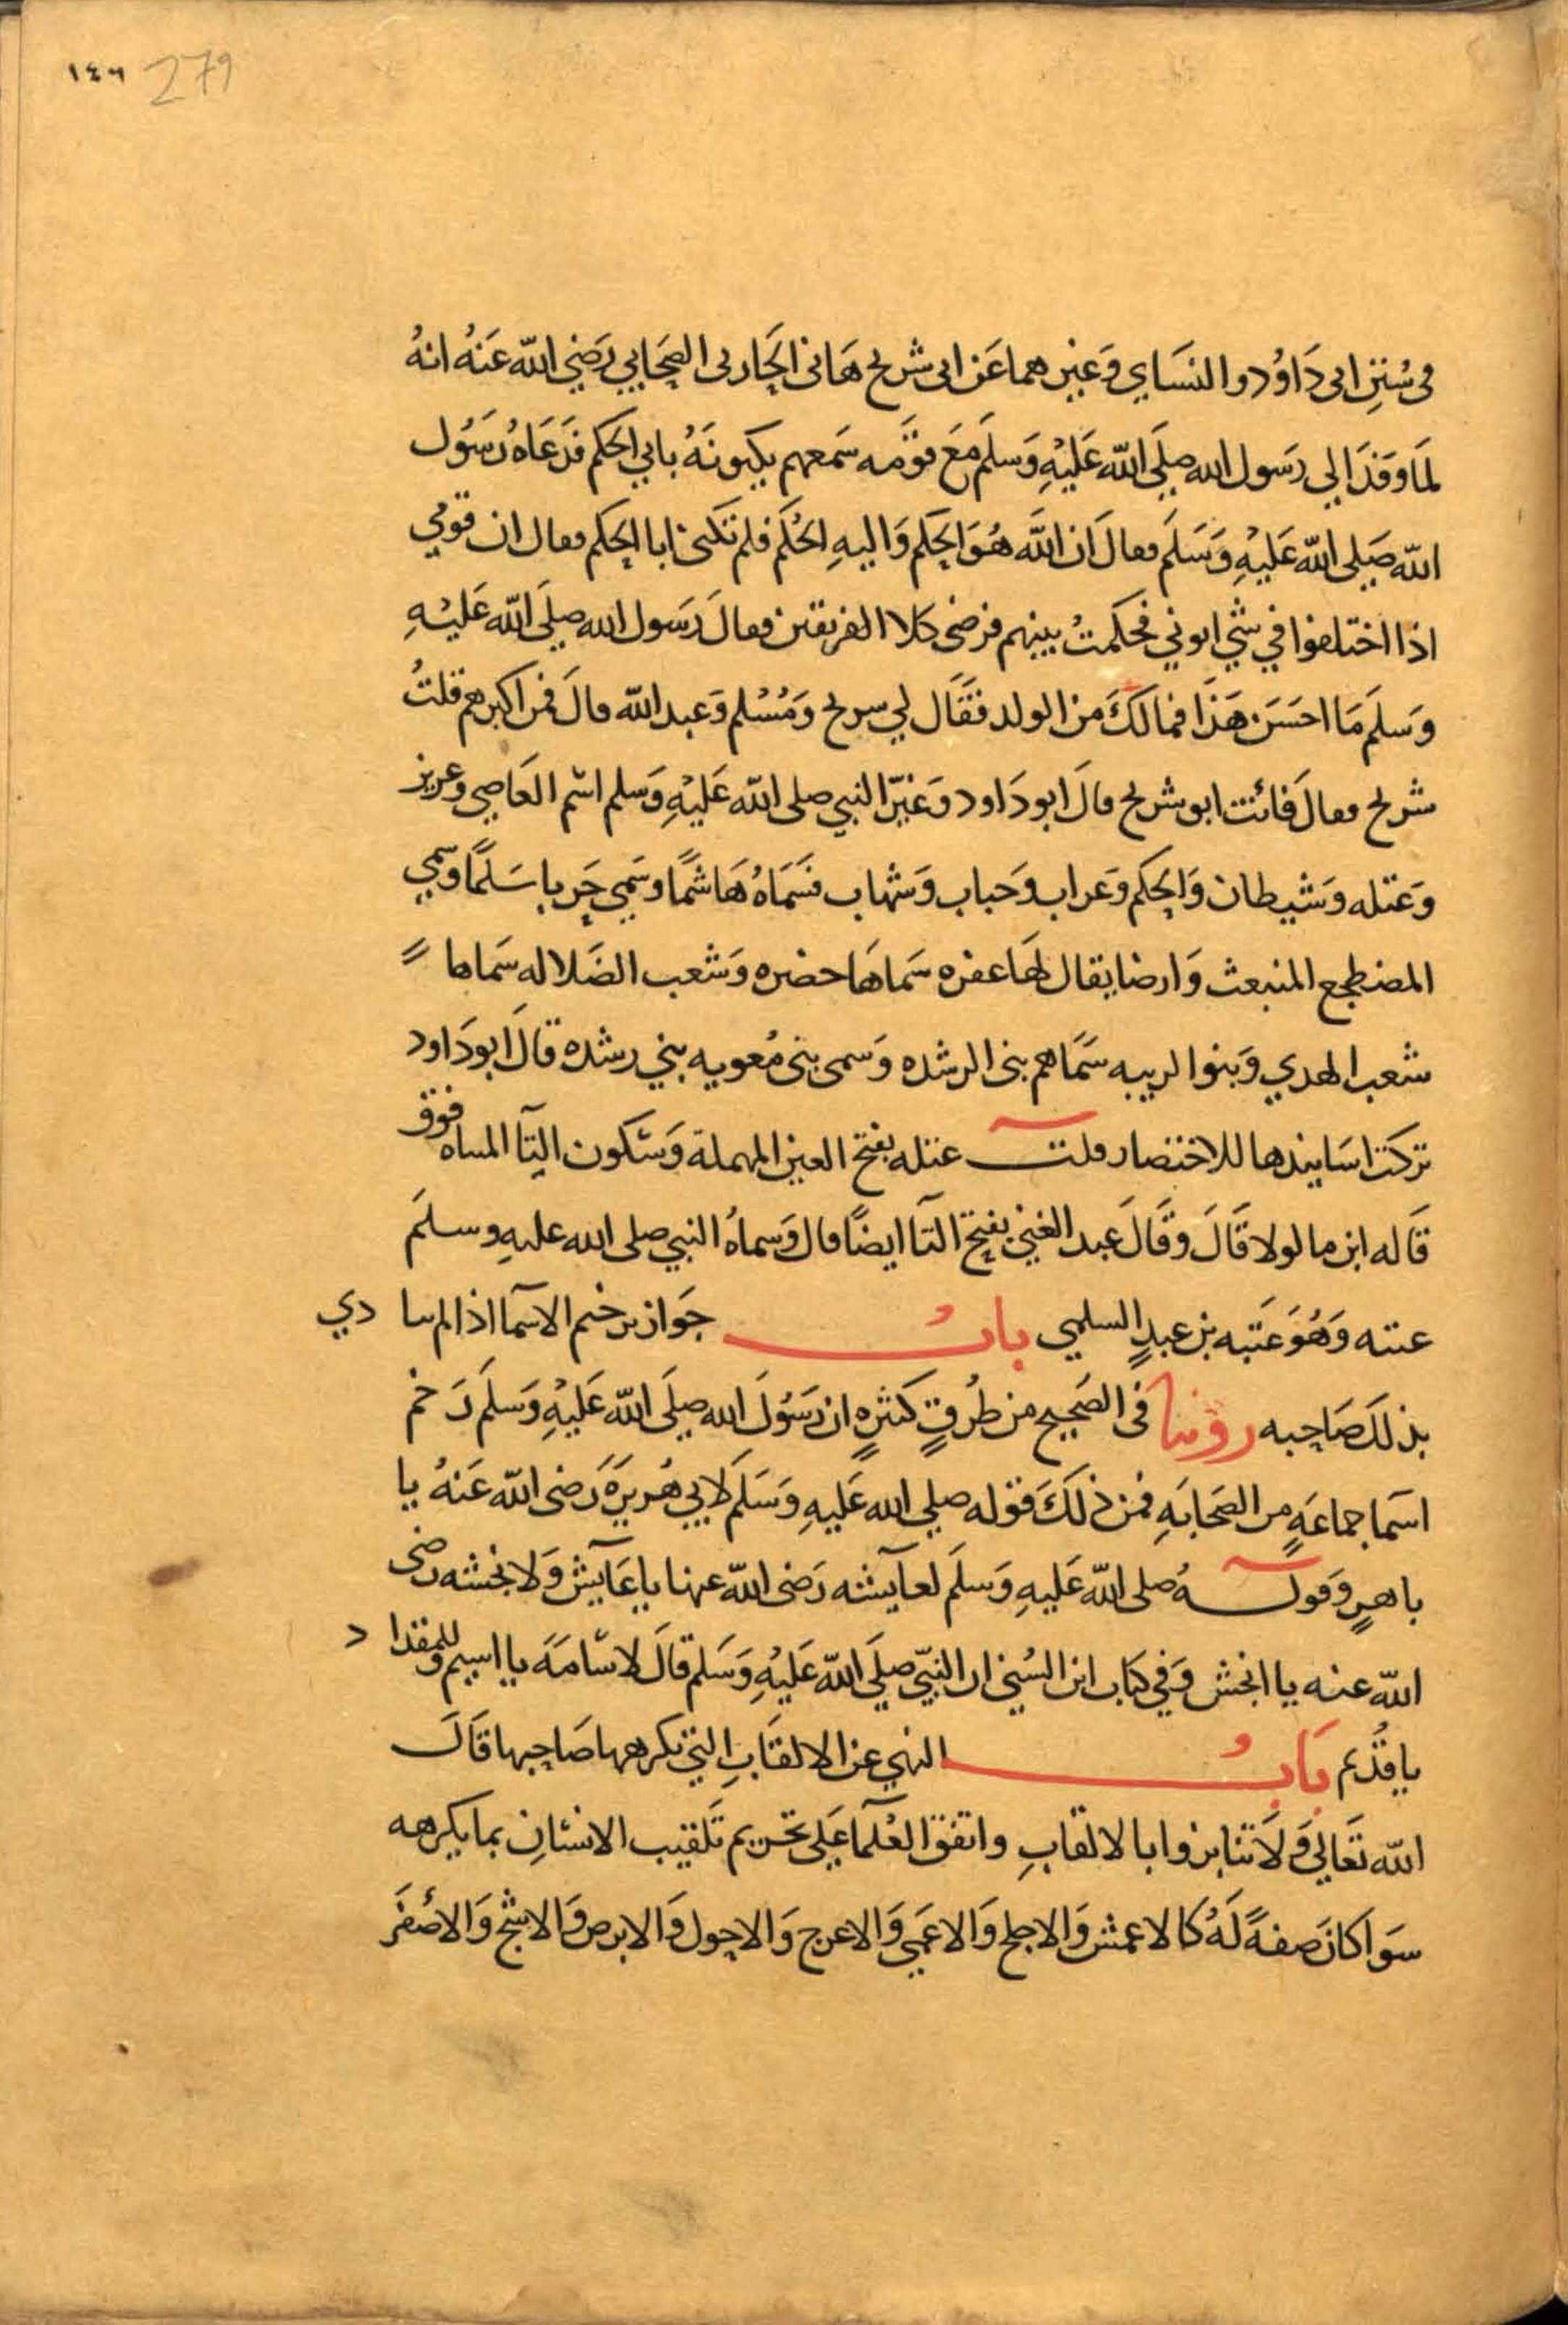 ١٤٦ 279
فى سُنَنِ ابى دَاوُد والنسَاي وَغيرهما عَن ابى شريح هَانى الحَارثى الصحَابي رَضي الله عَنهُ انهُ
لمَا وَفدَ الي رسَول الله صلَي الله عَليْهِ وَسلمَ مَعَ قوَمه سمَعهم يكنونَهُ بابي الحكم فدَعَاهُ رسَوُل
الله صَلى الله عَليْهِ وَسَلمَ فقالَ ان اللَّه هُوَ الحكم وَاليهِ الحُكم فلم تكنى ابا الحكم فقال ان قومي
اذا اختلفوا في شي اتوني فحكمتُ بينهم فرضى كلا الفريقين فقالَ رسَول الله صلَى الله عَليْهِ
وَسلمَ مَا احسَن هَذَا فمالكَ من الولد فقَال لي سريح وَمُسْلم وَعبد الله قالَ فمن اكبرهم قلتُ
شريح فقالَ فانت ابو شريح قالَ ابو دَاود وَغيّر النبي صلى الله عَليْهِ وَسلم اسْم العَاصي وعزيز
وَعتله وَشيطان وَالحكم وَغراب وَحباب وَشهاب فسَمَاهُ هَاشمًا وسَمي حَربا سَلمًا وسمي
المضطجع المنبعث وَارضا يقال لهَا عفره سَماهَا خضره وَشعب الضَلاله سَماها
شعب الهدي وَبنوا الريبه سمَاهم بنى الرشده وَسمى بنى مُعويه بني رشده قالَ ابو دَاود
تركت اسَانيدها للاختصار قلت عتله بفتح العين المهملة وَسْكون التآ المثناه فوق
قَاله ابن ماكولا قَالَ وَقَالَ عبد الغني بفتح التآ ايضًا قال وَسماهُ النبي صلى الله عليهِ وسلمَ
عتبه وَهُوَ عَتبه بن عبدٍ السلمي بابُ جوَاز ترخيم الاسمآ اذا لم يتا ذي
بذلكَ صَاحبه روينا فى الصَحيح من طُرقٍ كثيرهٍ ان رَسُولَ الله صلَى الله عَليْهِ وَسلمَ رَخم
اسمَا جماعَهٍ من الصَحَابَهِ فمن ذلكَ قوله صلي الله عَليهِ وَسَلم لابي هُريرَهَ رَضى الله عَنهُ يا
باهرٍ وَقولهُ صلى الله عَليهِ وَسلمَ لعآيشه رَضى الله عنها يا عَآيش وَلانجشه رضى
الله عنه يا انجش وَفي كتاب ابن السُني ان النبيّ صلَي الله عَليْهِ وَسَلم قالَ لاسْامَهَ يا اسيم وللمقدا د
يا قُدَيم بَابُ النهي عن الالقَابِ التي يكرهها صَاحبها قَالَ
الله تعَالى وَلَا تنابزوا بالالقابِ واتفقَ العُلمآ عَلى تحريم تَلقيب الانسْانِ بما يكرهه
سوَا كانَ صفهً لَهُ كالاعمش وَالاجلح وَالاعَمي وَالاعرج وَالاحول وَالابرص وَالاشج وَالاصْفَر